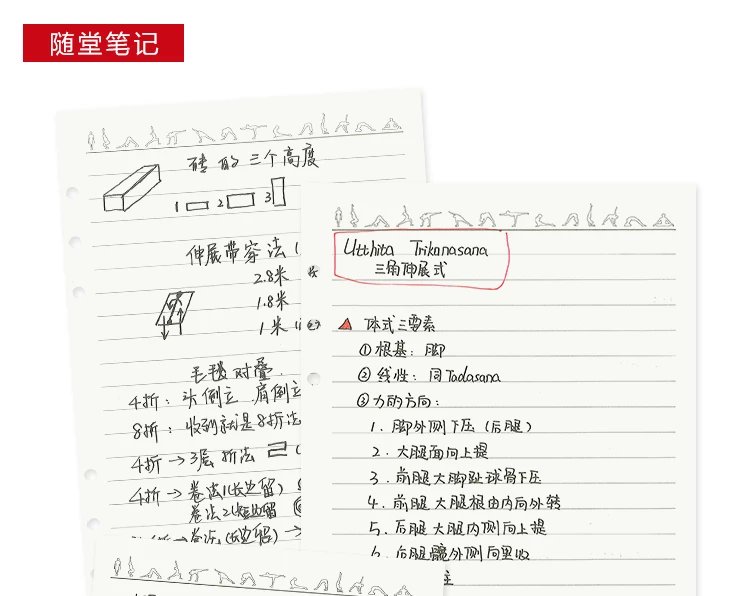 随堂笔记
砖的三个高度
1 2 3
伸展带穿法
2.8米
1.8米
1米
毛毯对叠
4折：头倒立 肩倒立
8折：收到就是8折法
4折→3层折法
4折→卷法1(长边留)
卷法2(短边留
卷法1(长边留)→
Utthita Trikonasana
三角伸展式
体式三要素
①根基：脚
②线性：同Tadasana
③力的方向：
1. 脚外侧下压（后腿）
2. 大腿面向上提
3. 前腿大脚趾球骨下压
4. 前腿大腿根由内向外转
5. 后腿大腿内侧向上提
6. 后腿髋外侧向里收